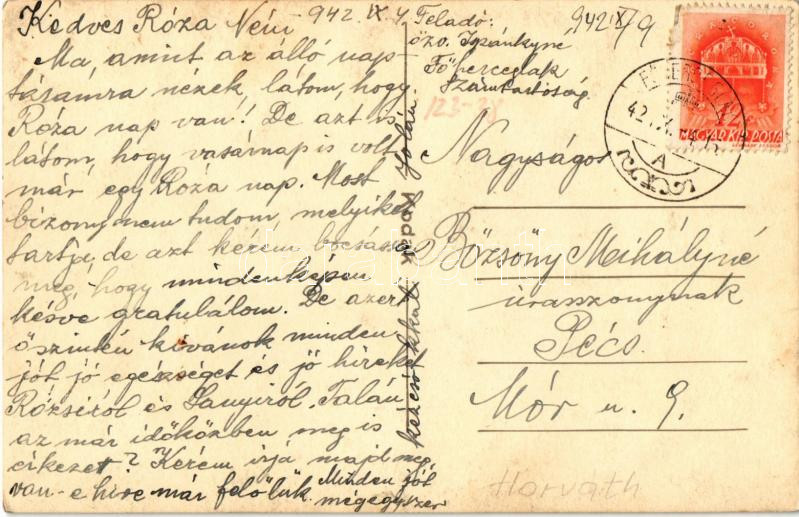 Kedves Róza Néni 942. IX. 4.
Ma, amint az álló nap-
táramra nézek, látom, hogy
Róza nap van! De azt is
látom, hogy vasárnap is volt
már egy Róza nap. Most
bizony nem tudom, melyiket
tartja, de azt kérem bocsássa
meg, hogy mindenképen
késve gratulálok. De azért
őszintén kívánok minden
jót, jó egészséget és jó híreket
Rózsiról és Sanyiról. Talán
az már időközben meg is
érkezett? Kérem írja majd meg
van-e híre már felőlük. Minden jót
mégegyszer
kézcsókkal Jolán
Feladó:
özv. Ispánkyné
Főherceglak
Számtartóság
942 IX/9
123-28
MAGYAR KIR. POSTA
42. IX.
A
Nagyságos
Bőzsöny Mihályné
úrasszonynak
Pécs.
Mór u. 9.
Horváth